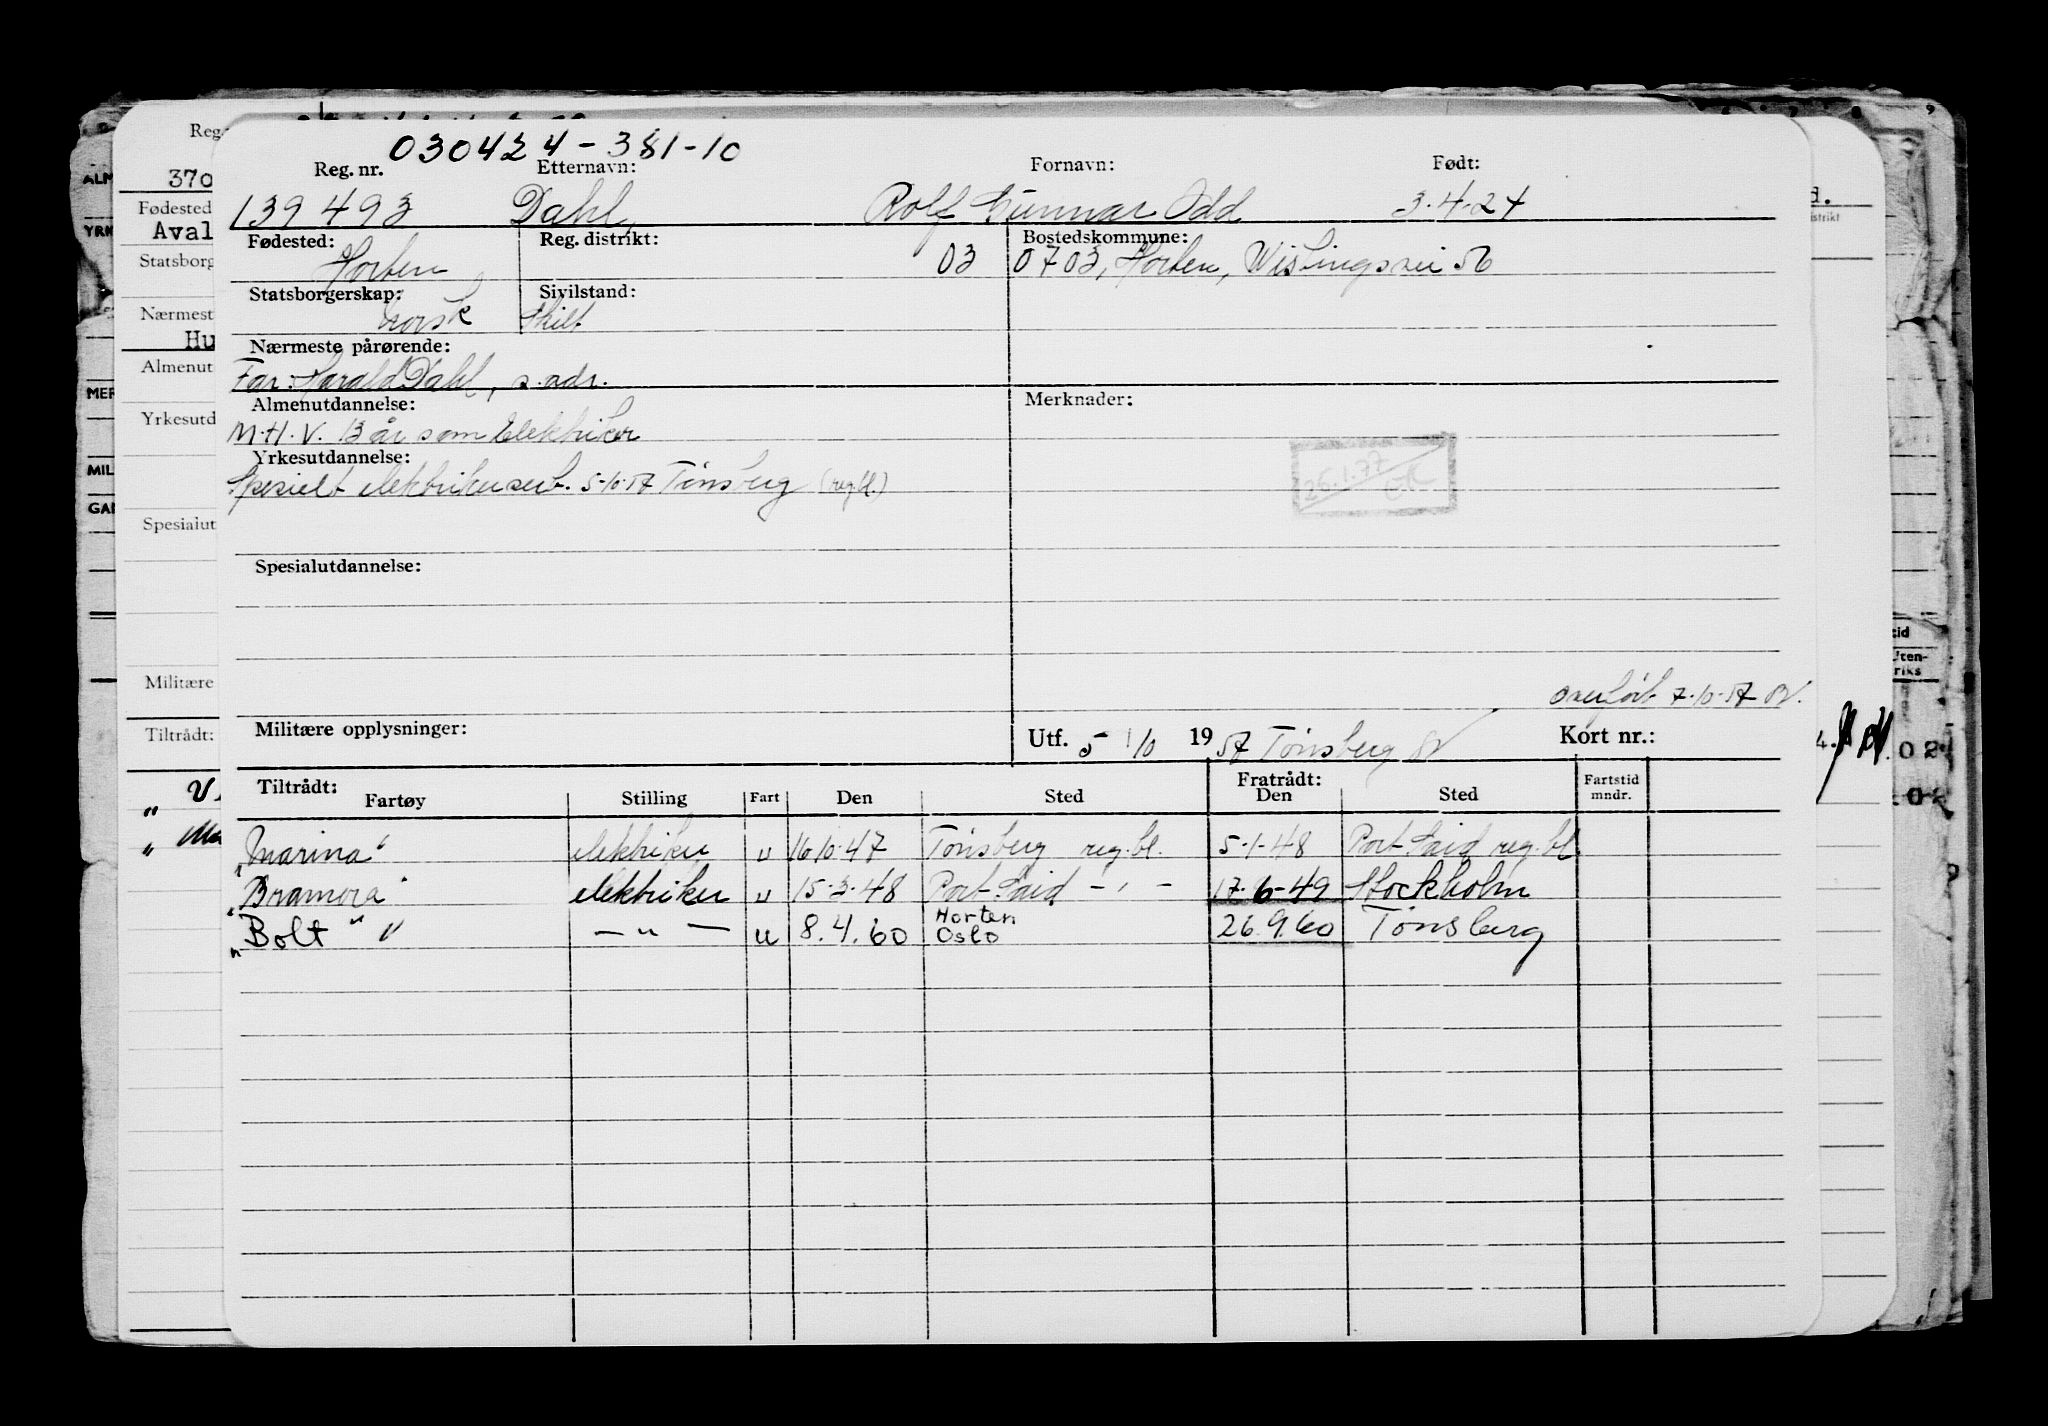 030424-381-10
Reg. nr. Etternavn: Fornavn: Født:
139493 Dahl, Rolf Gunnar Odd 3.4.24
Fødested: Reg. distrikt: Bostedskommune:
Horten 03 0703, Horten, Wistingsvei 56
Statsborgerskap: Sivilstand:
norsk Skilt
Nærmeste pårørende:
Far: Harald Dahl, s.adr.
Almenutdannelse: Merknader:
M.H.V. 13 år som Elektriker
Yrkesutdannelse:
Spesielt elektrikersert. 5-10-57 Tønsberg (reg.bl.)
26.1.77
Spesialutdannelse:
overført 7-10-57
Militære opplysninger: Utf. 5/10 1957 Tønsberg Kort nr.:
Tiltrådt: Fratrådt: Fartstid mndr.
Fartøy Stilling Fart Den Sted Den Sted
"Marina" elektriker u 16.10.47 Tønsberg reg.bl. 5-1-48 Port Said reg.bl.
"Bramora" elektriker u 15-3-48 Port Said - " - 17-6-49 Stockholm
"Bolt" — " — u 8.4.60 Horten Oslo 26.9.60 Tønsberg
Reg
370
Fødested
Aval
Statsborg
Nærmest
Hu
Almenut
Yrkesutd
Spesialut
Militære
Tiltrådt:
ALM
YRK
MER
MIL
GAN
d.
istrikt
tid
Uten-
riks
02